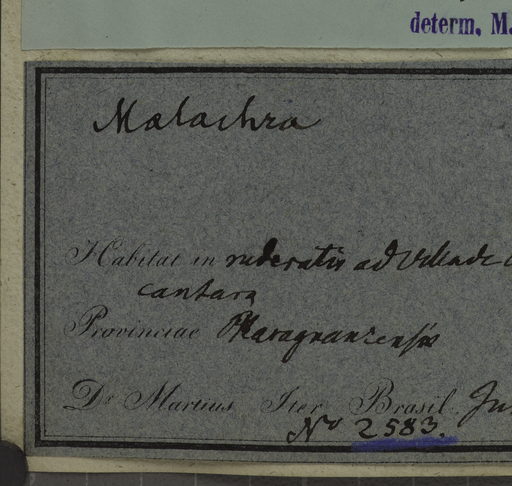 determ, M.
Malachra
Habitat in ruderatis ad Villa de
cantara
Provinciae Maragnanensis
Dr Martius Iter Brasil. Ju
No 2583.